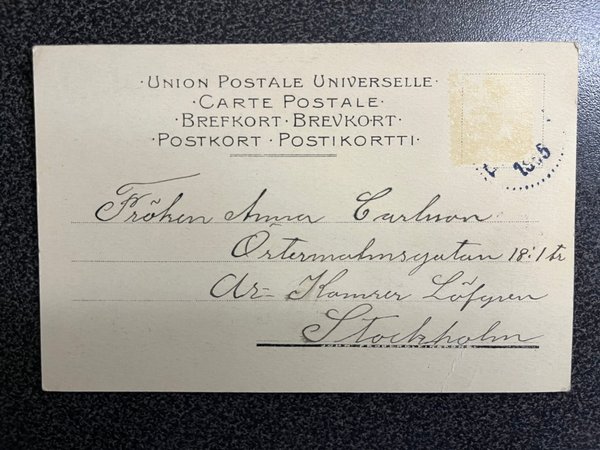 ·UNION POSTALE UNIVERSELLE·
·CARTE POSTALE·
·BREFKORT·BREVKORT·
·POSTKORT·POSTIKORTTI·
1905
Fröken Anna Carlsson
Östermalmsgatan 18:1 tr
Ar- Kamrer Löfgren
Stockholm
JOHN FRÖBERG, FINSPONG.